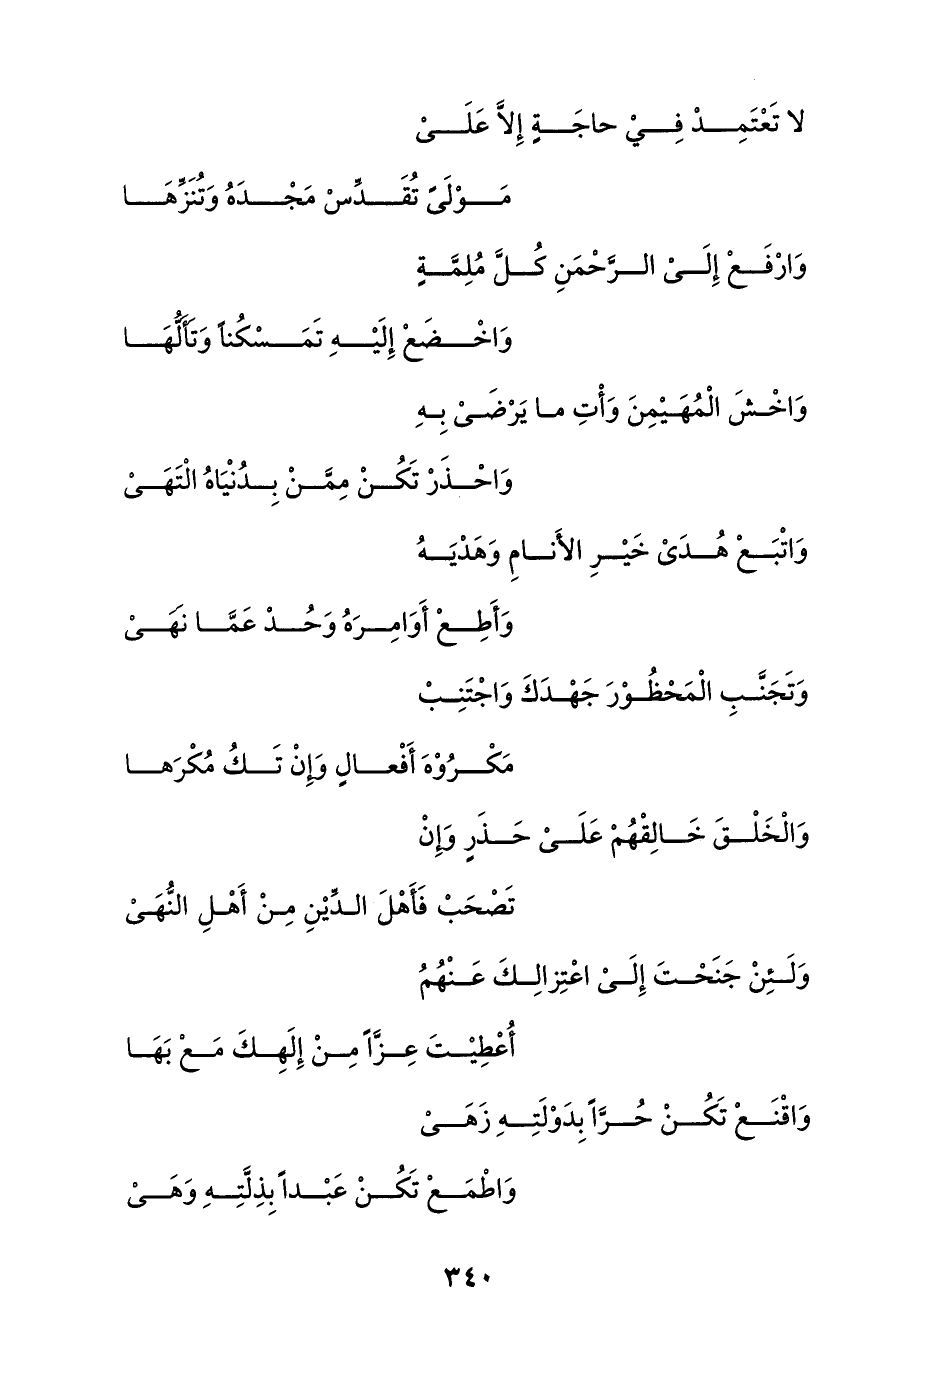 لا تَعْتَمِدْ فِيْ حاجَةٍ إِلاَّ عَلَىْ
مَوْلَىً تُقَدِّسْ مَجْدَهُ وَتُنَزِّهَا
وَارْفَعْ إِلَىْ الرَّحْمَنِ كُلَّ مُلِمَّةٍ
وَاخْضَعْ إِلَيْهِ تَمَسْكُناً وَتَأَلُّهَا
وَاخْشَ الْمُهَيْمِنَ وَأْتِ ما يَرْضَىْ بِهِ
وَاحْذَرْ تَكُنْ مِمَّنْ بِدُنْيَاهُ الْتَهَىْ
وَاتْبَعْ هُدَىْ خَيْرِ الأَنامِ وَهَدْيَهُ
وَأَطِعْ أَوَامِرَهُ وَحُدْ عَمَّا نَهَىْ
وَتَجَنَّبِ الْمَحْظُوْرَ جَهْدَكَ وَاجْتَنِبْ
مَكْرُوْهَ أَفْعالٍ وَإِنْ تَكُ مُكْرَها
وَالْخَلْقَ خَالِقْهُمْ عَلَىْ حَذَرٍ وَإِنْ
تَصْحَبْ فَأَهْلَ الدِّيْنِ مِنْ أَهْلِ النُّهَىْ
وَلَئِنْ جَنَحْتَ إِلَىْ اعْتِزالِكَ عَنْهُمُ
أُعْطِيْتَ عِزَّاً مِنْ إِلَهِكَ مَعْ بَهَا
وَاقْنَعْ تَكُنْ حُرَّاً بِدَوْلَتِهِ زَهَىْ
وَاطْمَعْ تَكُنْ عَبْداً بِذِلَّتِهِ وَهَىْ
٣٤٠